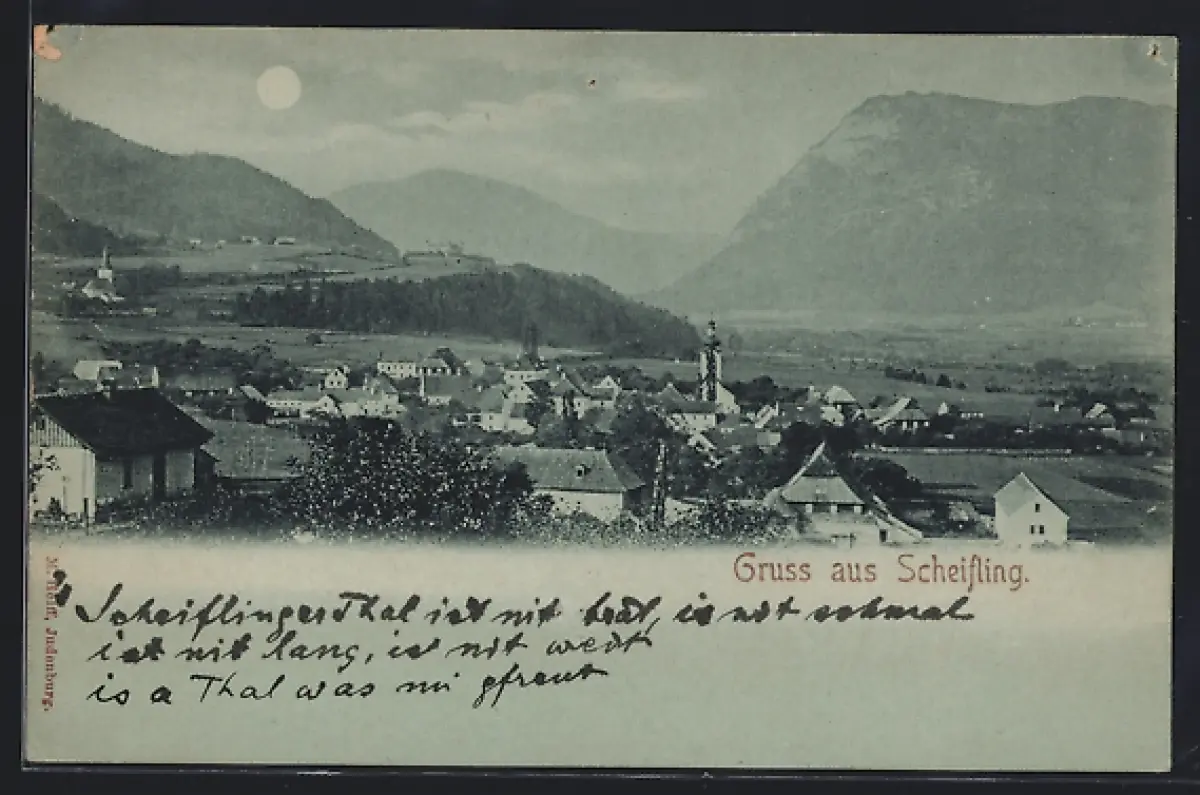 Gruss aus Scheifling.
" Scheiflinger Thal ist nit brat, is nit schmal
ist nit lang, is nit weit
is a Thal was mi gfreut
Judenburg.